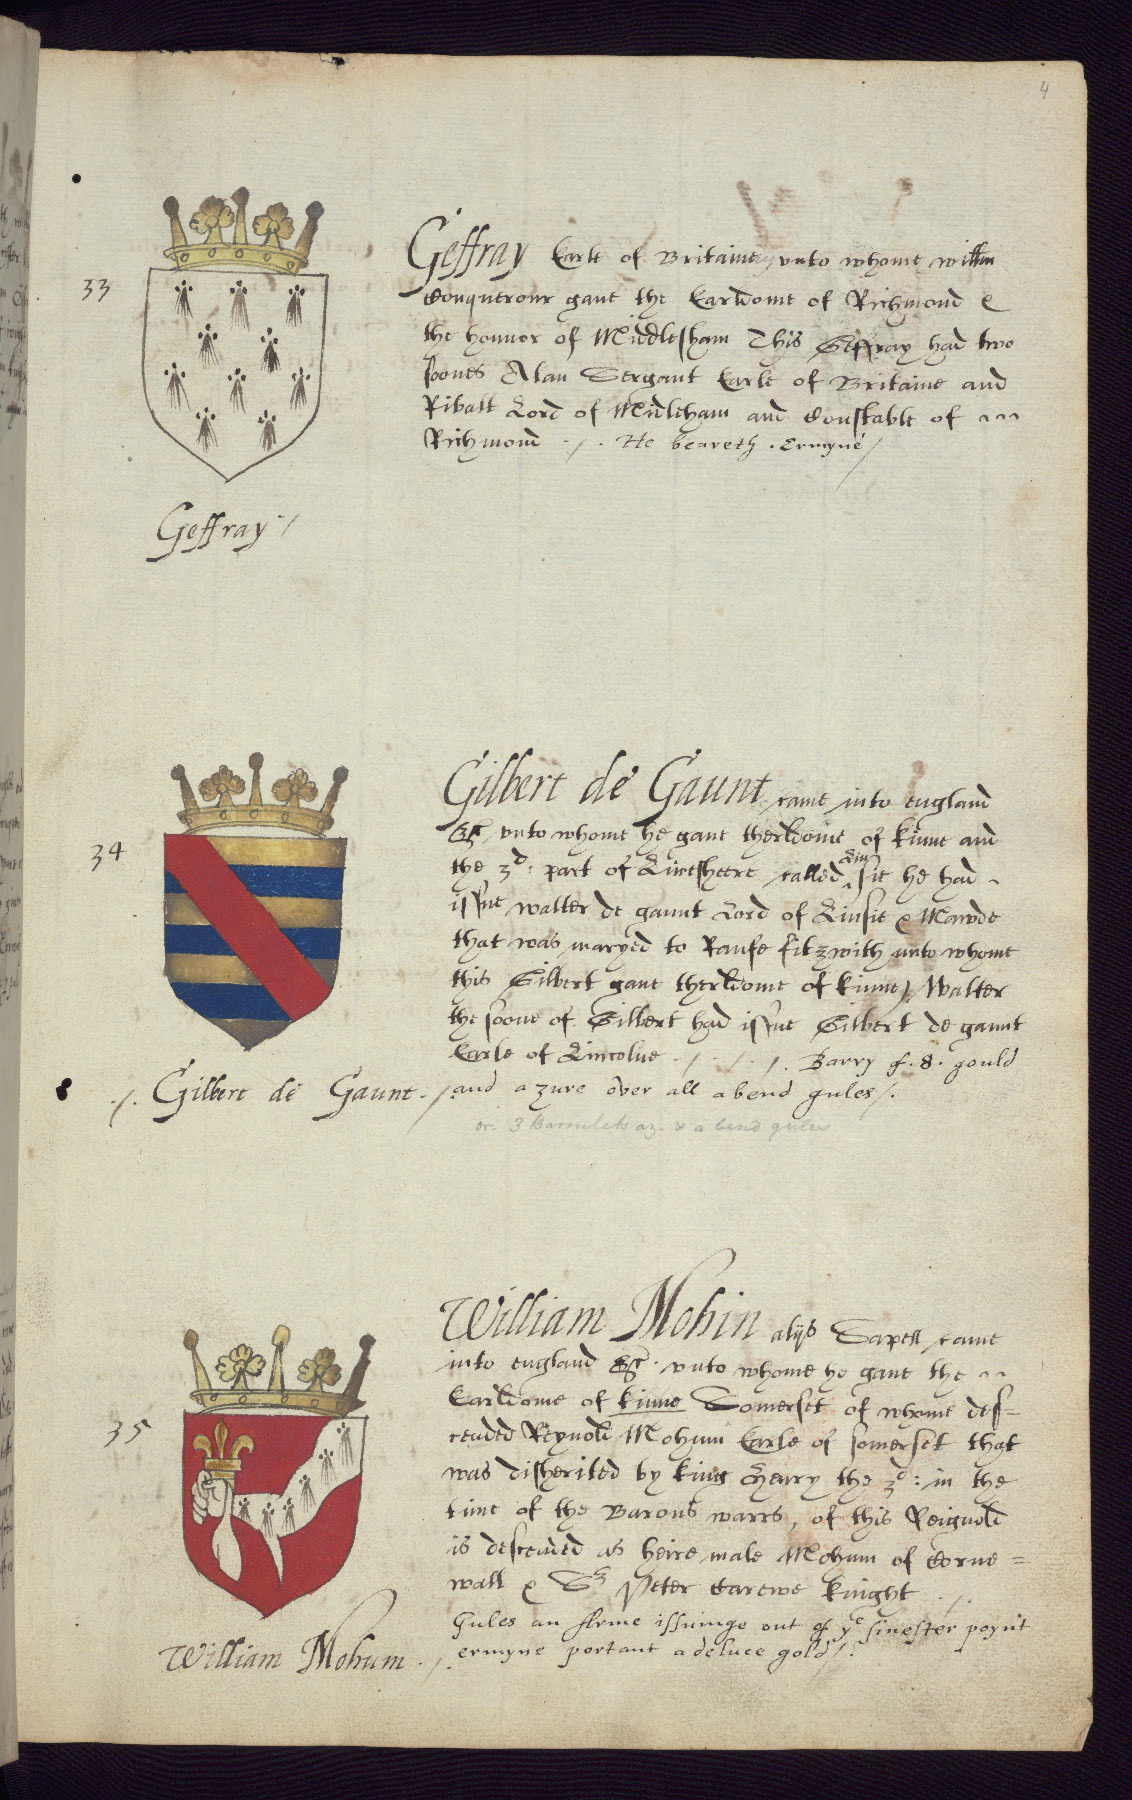 4
33
Geffray Earle of Britaine unto whome willm
Conquerour gave the Earldome of Richmond &
the honnor of Middlesham This Geffray had two
soones Alan Sergant Earle of Britaine and
Ribalt Lord of Midleham and Constable of
Richmond ./. He beareth . Ermyne /
Geffray ./
34
Gilbert de Gaunt came into england
&c unto whome he gave therldome of kime and
the 3d: part of Lincsheere called Lin^sie he had
issue walter de gaunt Lord of Linsie & Mawde
that was maryed to Raufe fitzwith unto whome
this Gilbert gave therldome of kime / Walter
the soone of Gilbert had issue Gilbert de gaunt
Earle of Lincolne ./. ./. Barry of .8. gould
and azure over all a bend gules /.
or. 3 Barrulets az. & a bend gules
./. Gilbert de Gaunt ./.
35
William Mohin alijs Sapell came
into england &c. unto whome he gave the
Earldome of kime Somerset of whome des=
cended Reynold Mohum Earle of somerset that
was disherited by king Henry the 3d: in the
time of the Barons warrs, of this Reignold
is descended as heire male Mohum of Corne=
wall & Sr Peter Carewe knight ./.
Gules an Arme issuinge out of ye sinester poynt
ermyne portant a deluce gold /.
William Mohum ./.